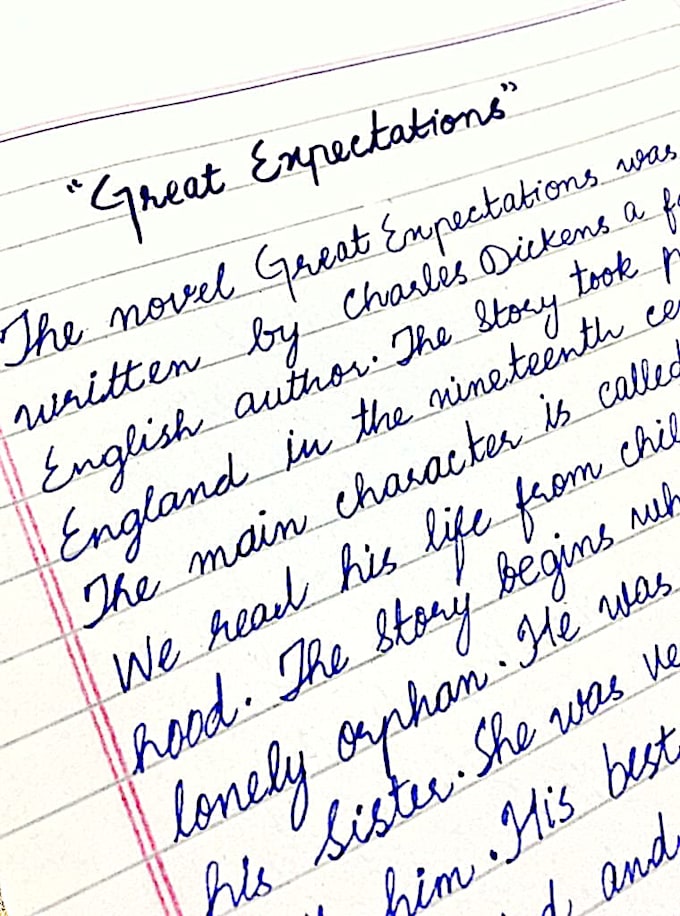 "Great Expectations"
The novel Great Expectations was
written by Charles Dickens a
English author. The Story took
England in the nineteenth
The main character is called
We read his life from
hood. The Story begins
lonely orphan. He was
his sister. She was
him. His best
and